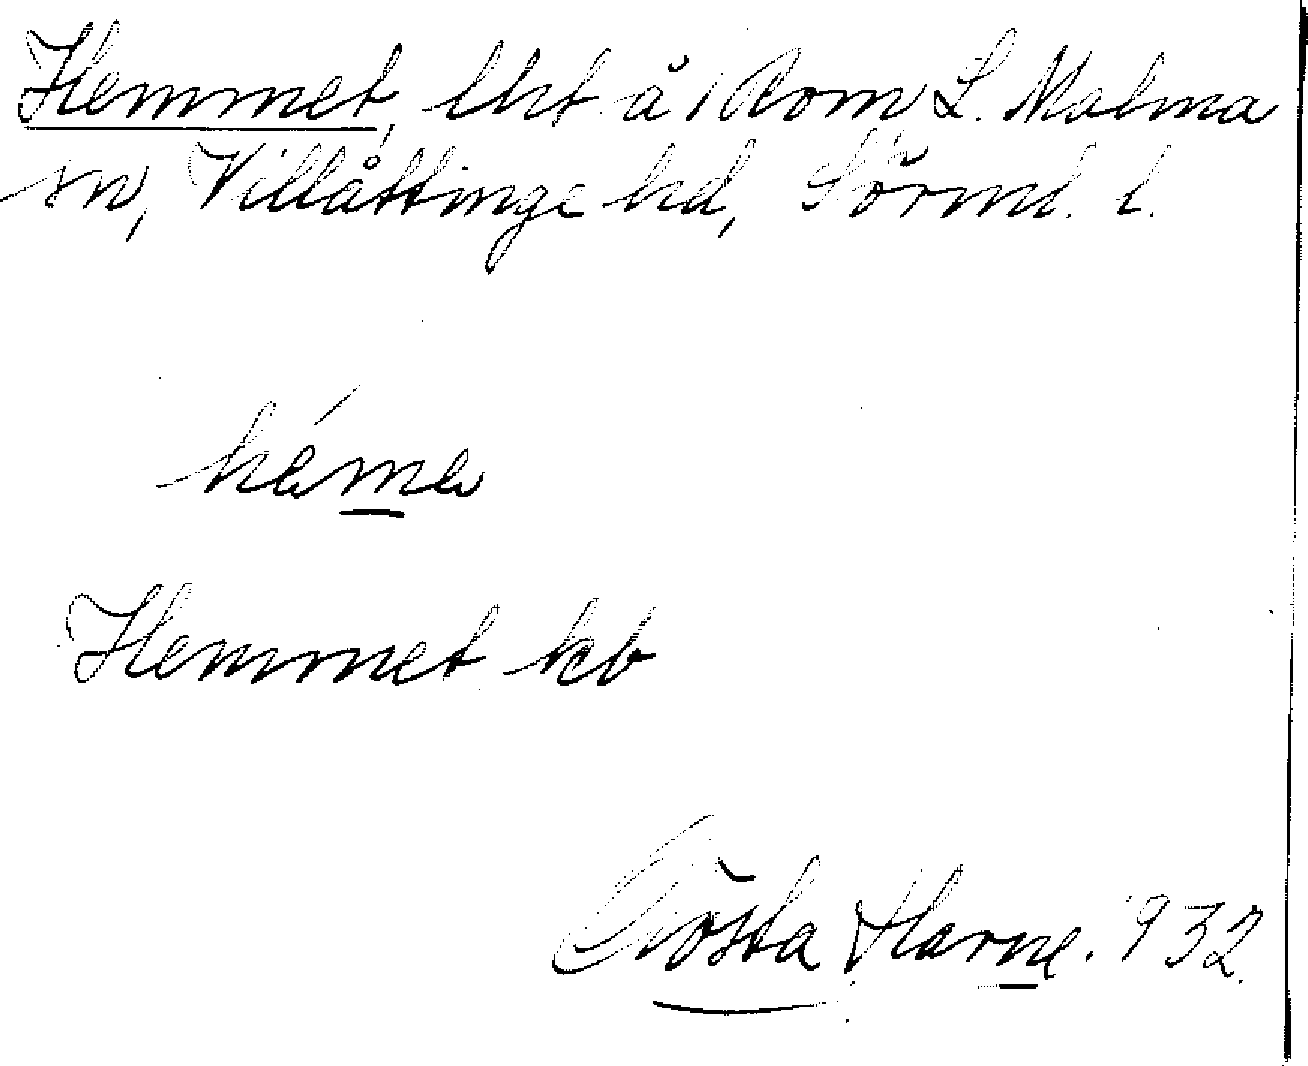 Hemmet, lht å Rom L. Malma
sn, Villåttinge hd, Sörml. l.
héme
Hemmet kb
Gösta Harne. 932.